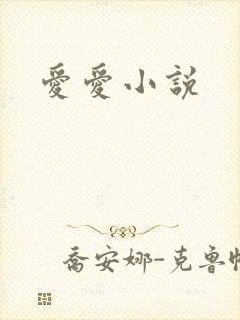 愛愛小說
喬安娜-克魯